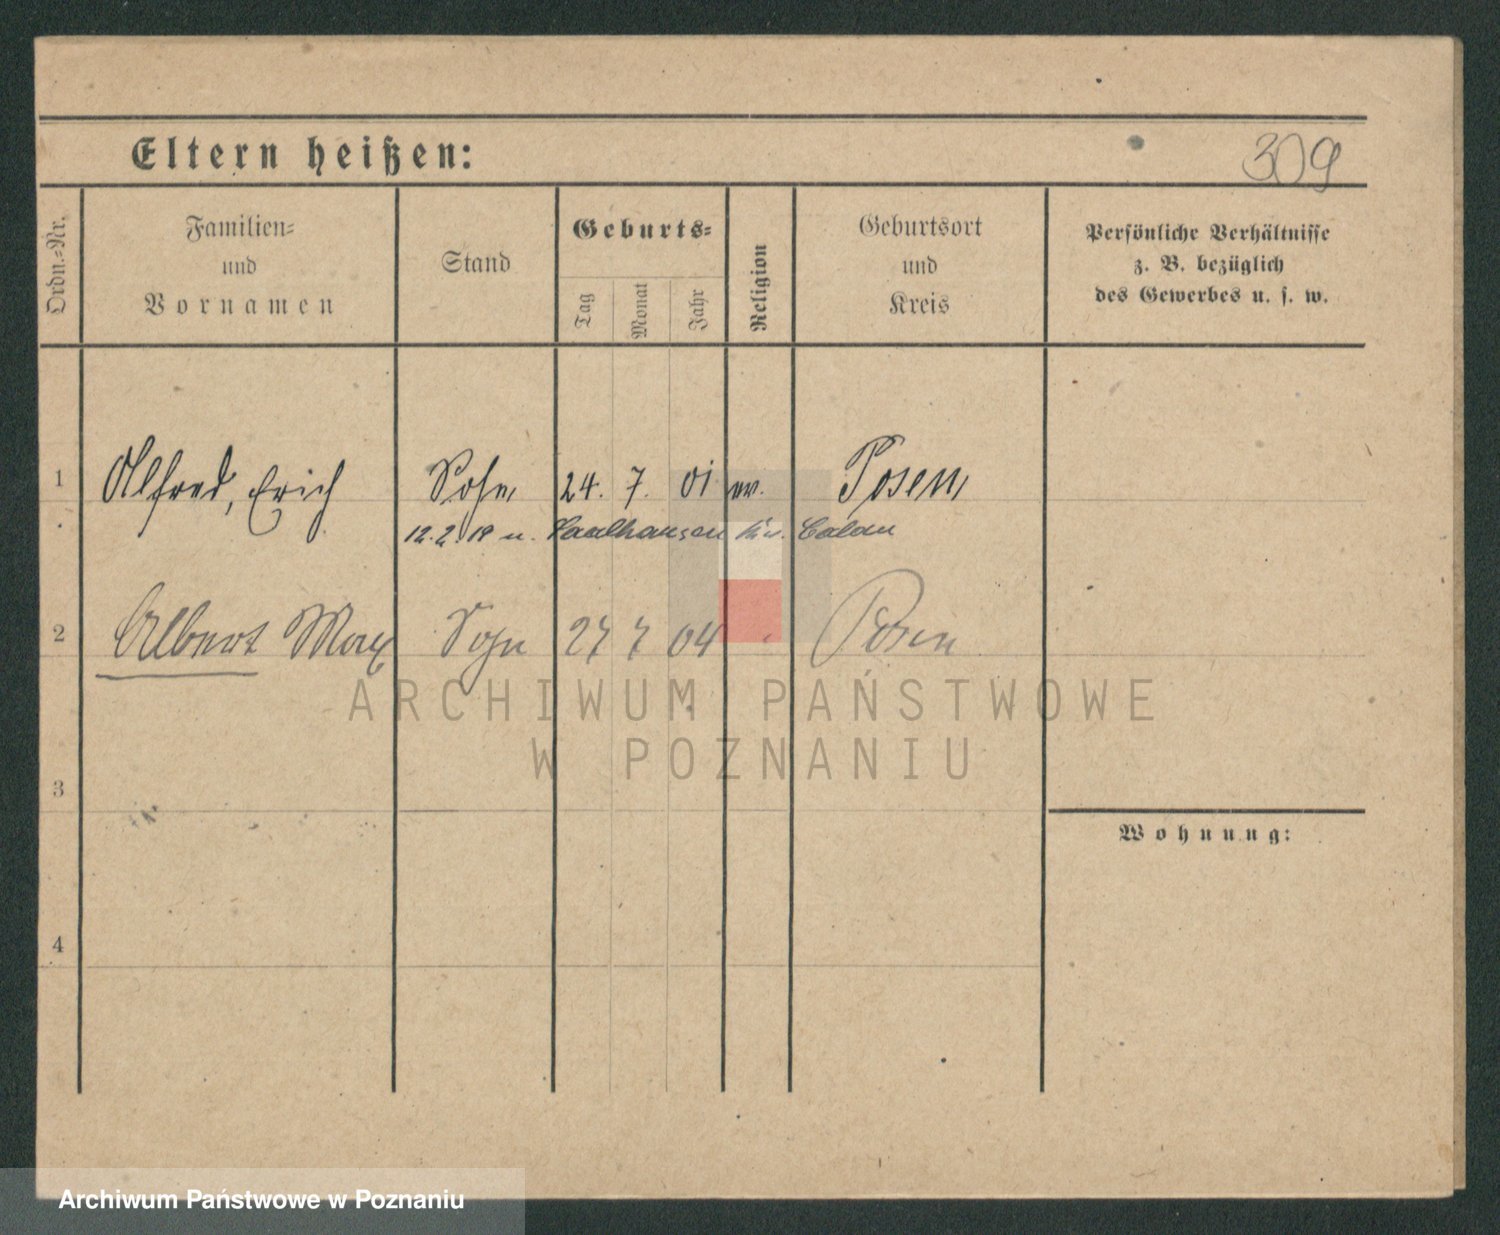 Eltern heißen:
309
Ordn.-Nr.
Familien-
und
Vornamen
Stand
Geburts-
Tag
Monat
Jahr
Religion
Geburtsort
und
Kreis
Persönliche Verhältnisse
z. B. bezüglich
des Gewerbes u. s. w.
1 Alfred, Erich Sohn 24. 7. 01 ev. Posen
12.2.19 n. Saalhausen Kr. Calau
2 Albert Max Sohn 27 7 04 Posen
ARCHIWUM PAŃSTWOWE
W POZNANIU
3
Wohnung:
4
Archiwum Państwowe w Poznaniu